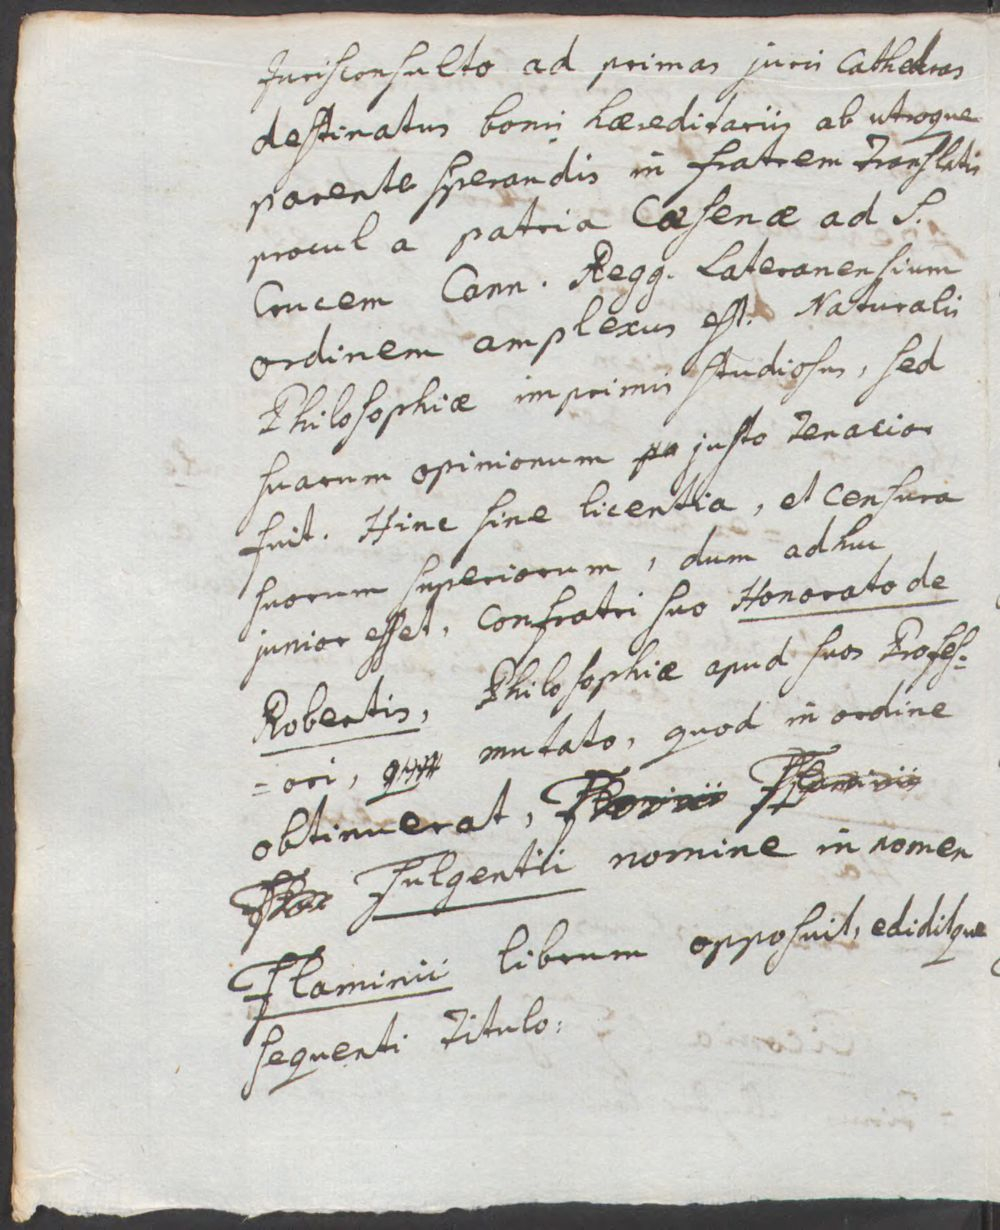 Jurisconsulto ad primas juris Cathedras
destinatus bonis hæreditariis ab utroque
parente sperandis in fratrem Translatis
procul a patria Cæsenæ ad S.
Crucem Cann. Regg. Lateranensium
ordinem amplexus est. Naturalis
Philosophiæ imprimis studiosus, sed
suarum opinionum justo Tenacior
fuit. Hinc sine licentia, et censura
suorum superiorum, dum adhuc
junior esset, Confratri suo Honorato de
Robertis, Philosophiæ apud suos Profes=
=ori, mutato, quod in ordine
obtinuerat, Flaminii
Fulgentii nomine in nomen
Flaminii librum opposuit, ediditque
sequenti Titulo: